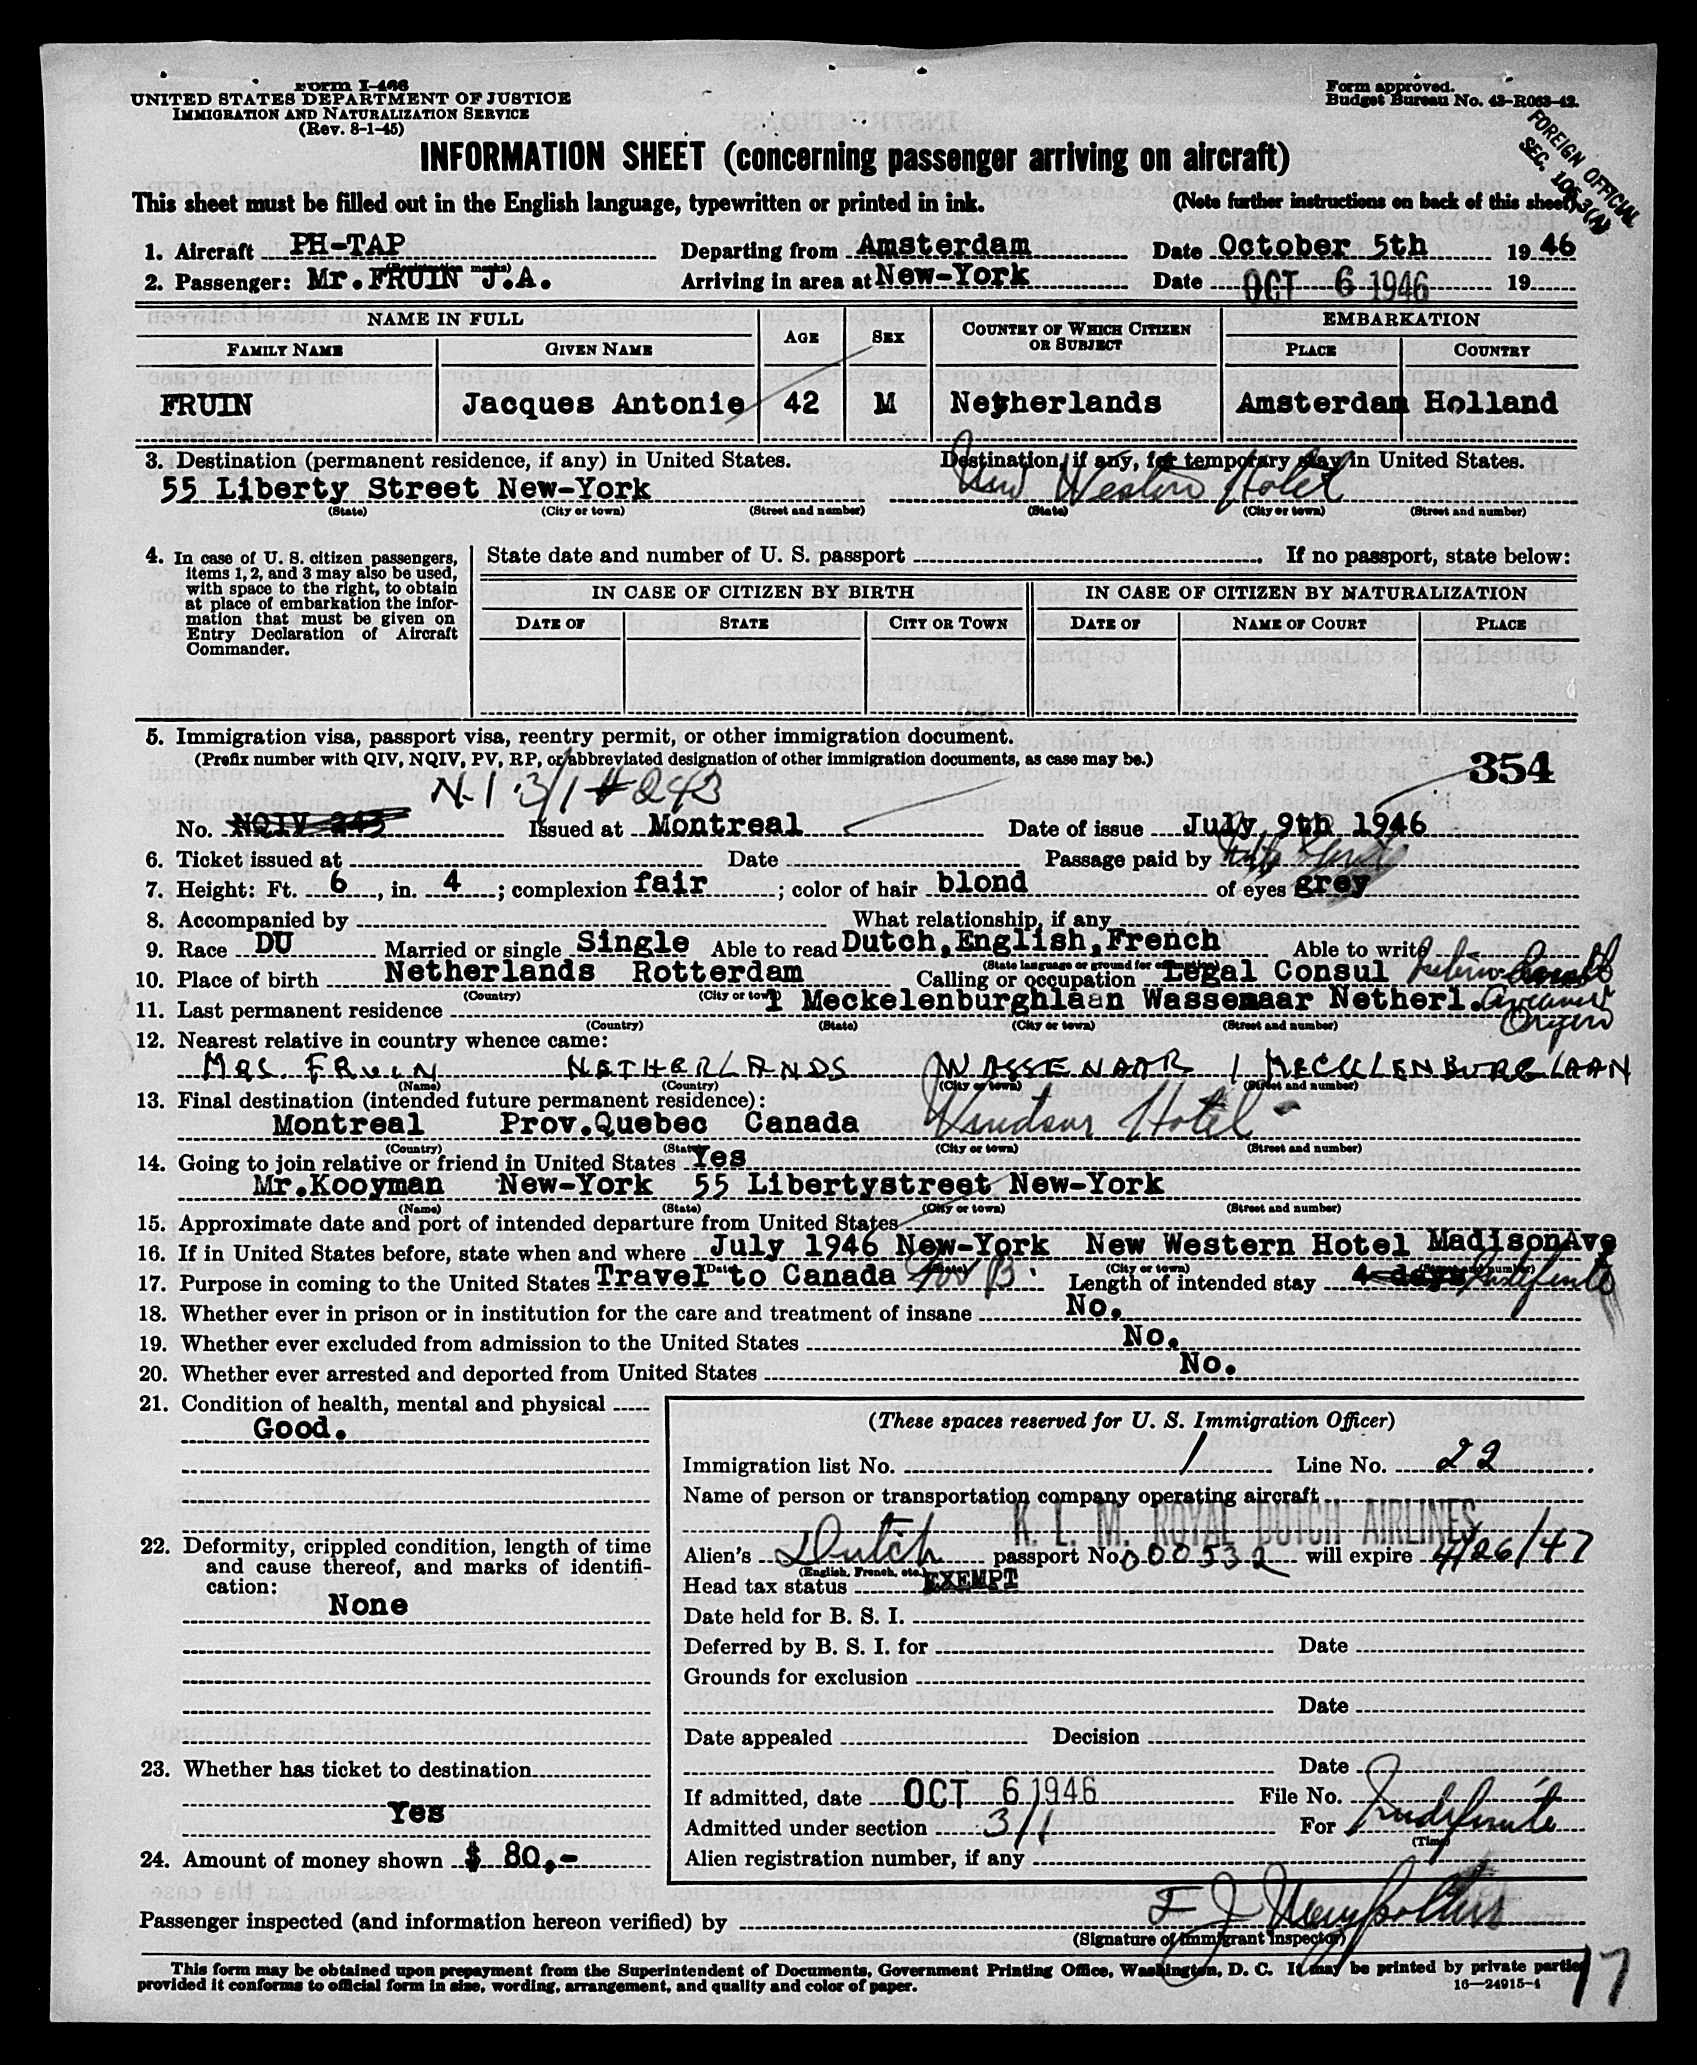 Form I-466
UNITED STATES DEPARTMENT OF JUSTICE
IMMIGRATION AND NATURALIZATION SERVICE
(Rev. 8-1-45)
Form approved.
Budget Bureau No. 43-R063-42.
FOREIGN OFFICIAL
SEC. 105.3(A)
INFORMATION SHEET (concerning passenger arriving on aircraft)
This sheet must be filled out in the English language, typewritten or printed in ink. (Note further instructions on back of this sheet)
1. Aircraft PH-TAP Departing from Amsterdam Date October 5th 19 46
(Registration marks)
2. Passenger: Mr. FRUIN J.A. Arriving in area at New-York Date OCT 6 1946 19
NAME IN FULL AGE SEX COUNTRY OF WHICH CITIZEN OR SUBJECT EMBARKATION
FAMILY NAME GIVEN NAME PLACE COUNTRY
FRUIN Jacques Antonie 42 M Netherlands Amsterdam Holland
3. Destination (permanent residence, if any) in United States. Destination, if any, for temporary stay in United States.
55 Liberty Street New-York New Weston Hotel
(State) (City or town) (Street and number) (State) (City or town) (Street and number)
4. In case of U. S. citizen passengers, items 1, 2, and 3 may also be used, with space to the right, to obtain at place of embarkation the information that must be given on Entry Declaration of Aircraft Commander.
State date and number of U. S. passport . If no passport, state below:
IN CASE OF CITIZEN BY BIRTH IN CASE OF CITIZEN BY NATURALIZATION
DATE OF STATE CITY OR TOWN DATE OF NAME OF COURT PLACE
5. Immigration visa, passport visa, reentry permit, or other immigration document.
(Prefix number with QIV, NQIV, PV, RP, or abbreviated designation of other immigration documents, as case may be.)
354
N-I 3/1 # 243
No. NQIV 243 Issued at Montreal Date of issue July 9th 1946
6. Ticket issued at Date Passage paid by
7. Height: Ft. 6, in. 4; complexion fair; color of hair blond of eyes grey
8. Accompanied by What relationship, if any
9. Race DU Married or single Single Able to read Dutch, English, French Able to write
(State language or ground for exemption)
10. Place of birth Netherlands Rotterdam Calling or occupation Legal Consul
(Country) (City or town)
11. Last permanent residence 1 Meckelenburghlaan Wassenaar Netherl.
(Country) (State) (City or town) (Street and number)
12. Nearest relative in country whence came:
MRS. FRUIN NETHERLANDS WASSENAAR 1 MECKLENBURGLAAN
(Name) (Country) (City or town) (Street and number)
13. Final destination (intended future permanent residence):
Montreal Prov. Quebec Canada Windsor Hotel
(Country) (State) (City or town) (Street and number)
14. Going to join relative or friend in United States Yes
Mr. Kooyman New-York 55 Libertystreet New-York
(Name) (State) (City or town) (Street and number)
15. Approximate date and port of intended departure from United States
16. If in United States before, state when and where July 1946 New-York New Western Hotel MadisonAve
(Date) (State) (City or town) (Street and number)
17. Purpose in coming to the United States Travel to Canada Length of intended stay 4 days Indefinite
18. Whether ever in prison or in institution for the care and treatment of insane No.
19. Whether ever excluded from admission to the United States No.
20. Whether ever arrested and deported from United States No.
21. Condition of health, mental and physical
Good.
22. Deformity, crippled condition, length of time and cause thereof, and marks of identification:
None
23. Whether has ticket to destination
Yes
24. Amount of money shown $ 80,-
(These spaces reserved for U. S. Immigration Officer)
Immigration list No. 1 Line No. 22
Name of person or transportation company operating aircraft
K. L. M. ROYAL DUTCH AIRLINES
Alien's Dutch passport No. 000532 will expire 4/26/47
(English, French, etc.)
Head tax status EXEMPT
Date held for B. S. I.
Deferred by B. S. I. for Date
Grounds for exclusion
Date
Date appealed Decision
Date
If admitted, date OCT 6 1946 File No.
Admitted under section 3/1 For Indefinite
(Time)
Alien registration number, if any
Passenger inspected (and information hereon verified) by
(Signature of Immigrant Inspector)
This form may be obtained upon prepayment from the Superintendent of Documents, Government Printing Office, Washington, D. C. It may be printed by private parties
provided it conforms to official form in size, wording, arrangement, and quality and color of paper. 16—24915-1
17